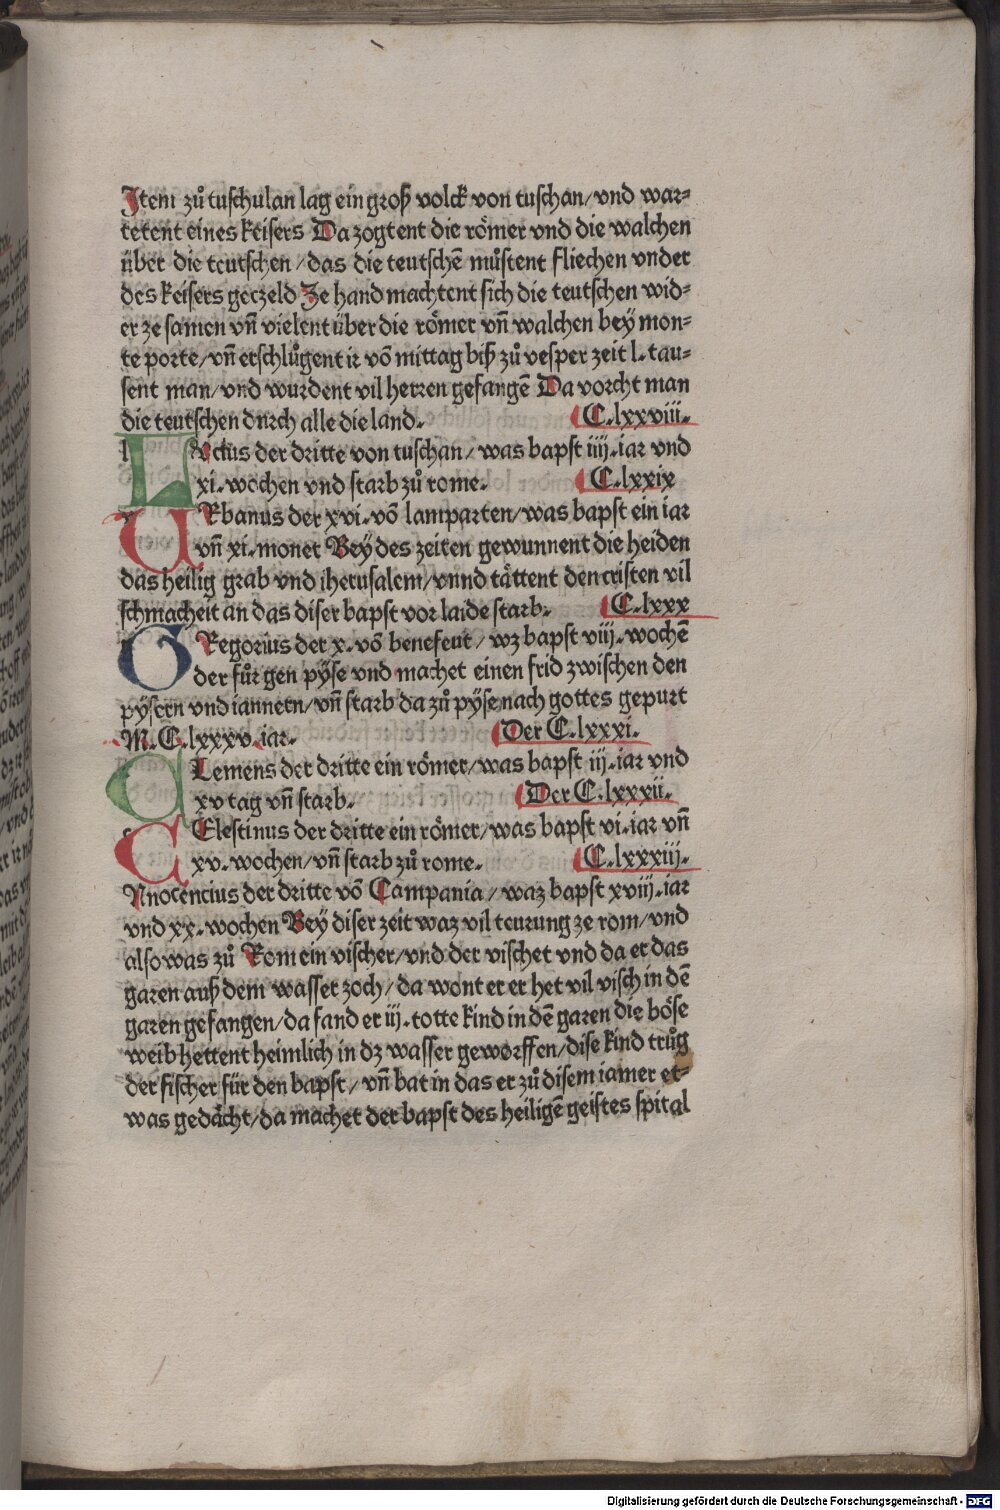 Item zů tuschulan lag ein groß volck von tuschan/ vnd war-
tetent eines keisers Da zogtent die römer vnd die walchen
über die teutschen/ das die teutschē můstent fliechen vnder
des keisers geczeld Ze hand machtent sich die teutschen wid-
er ze samen vn̄ vielent über die römer vn̄ walchen bey mon-
te porte/ vn̄ erschlůgent ir vō mittag biß zů vesper zeit l. tau-
sent man/ vnd wurdent vil herren gefangē Da vorcht man
die teutschen durch alle die land. C. lxxviii.
LVcius der dritte von tuschan/ was bapst iiij. iar vnd
xi. wochen vnd starb zů rome. C. lxxix
URbanus der xvi. vō lamparten/ was bapst ein iar
vn̄ xi. monet Bey des zeiten gewunnent die heiden
das heilig grab vnd iherusalem/ vnnd tättent den cristen vil
schmacheit an das diser bapst vor laide starb. C. lxxx
GRegorius der x. vō benefent/ wz bapst viij. wochē
der fůr gen pÿse vnd machet einen frid zwischen den
pÿsern vnd iannern/ vn̄ starb da zů pÿse nach gottes gepurt
M. C. lxxxv. iar. Der C. lxxxi.
CLemens der dritte ein römer/ was bapst iij. iar vnd
xv tag vn̄ starb. Der C. lxxxii.
CElestinus der dritte ein römer/ was bapst vi. iar vn̄
xv. wochen/ vn̄ starb zů rome. C. lxxxiij.
Nnocencius der dritte vō Campania/ waz bapst xviij. iar
vnd xx. wochen Bey diser zeit waz vil teurung ze rom/ vnd
also was zů Rom ein vischer/ vnd der vischet vnd da er das
garen auß dem wasser zoch/ da wont er er het vil visch in dē
garen gefangen/ da fand er iij. totte kind in dē garen die böse
weib hettent heimlich in dz wasser geworffen/ dise kind trůg
der fischer für den bapst/ vn̄ bat in das er zů disem iamer et-
was gedächt/ da machet der bapst des heiligē geistes spital
Digitalisierung gefördert durch die Deutsche Forschungsgemeinschaft - DFG